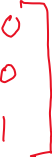 0
0
1
]